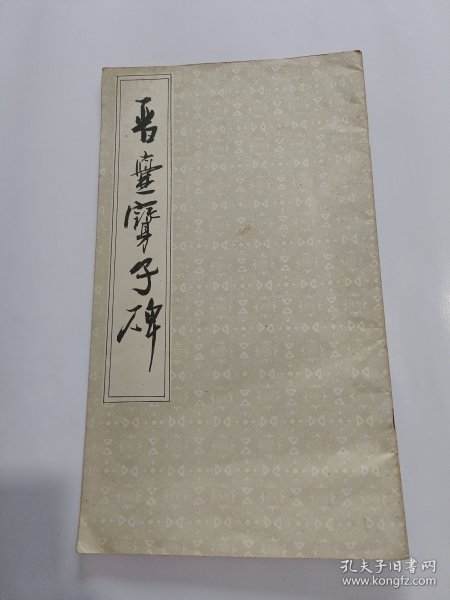 晋爨寶子碑
孔夫子旧书网
www.kongfz.com